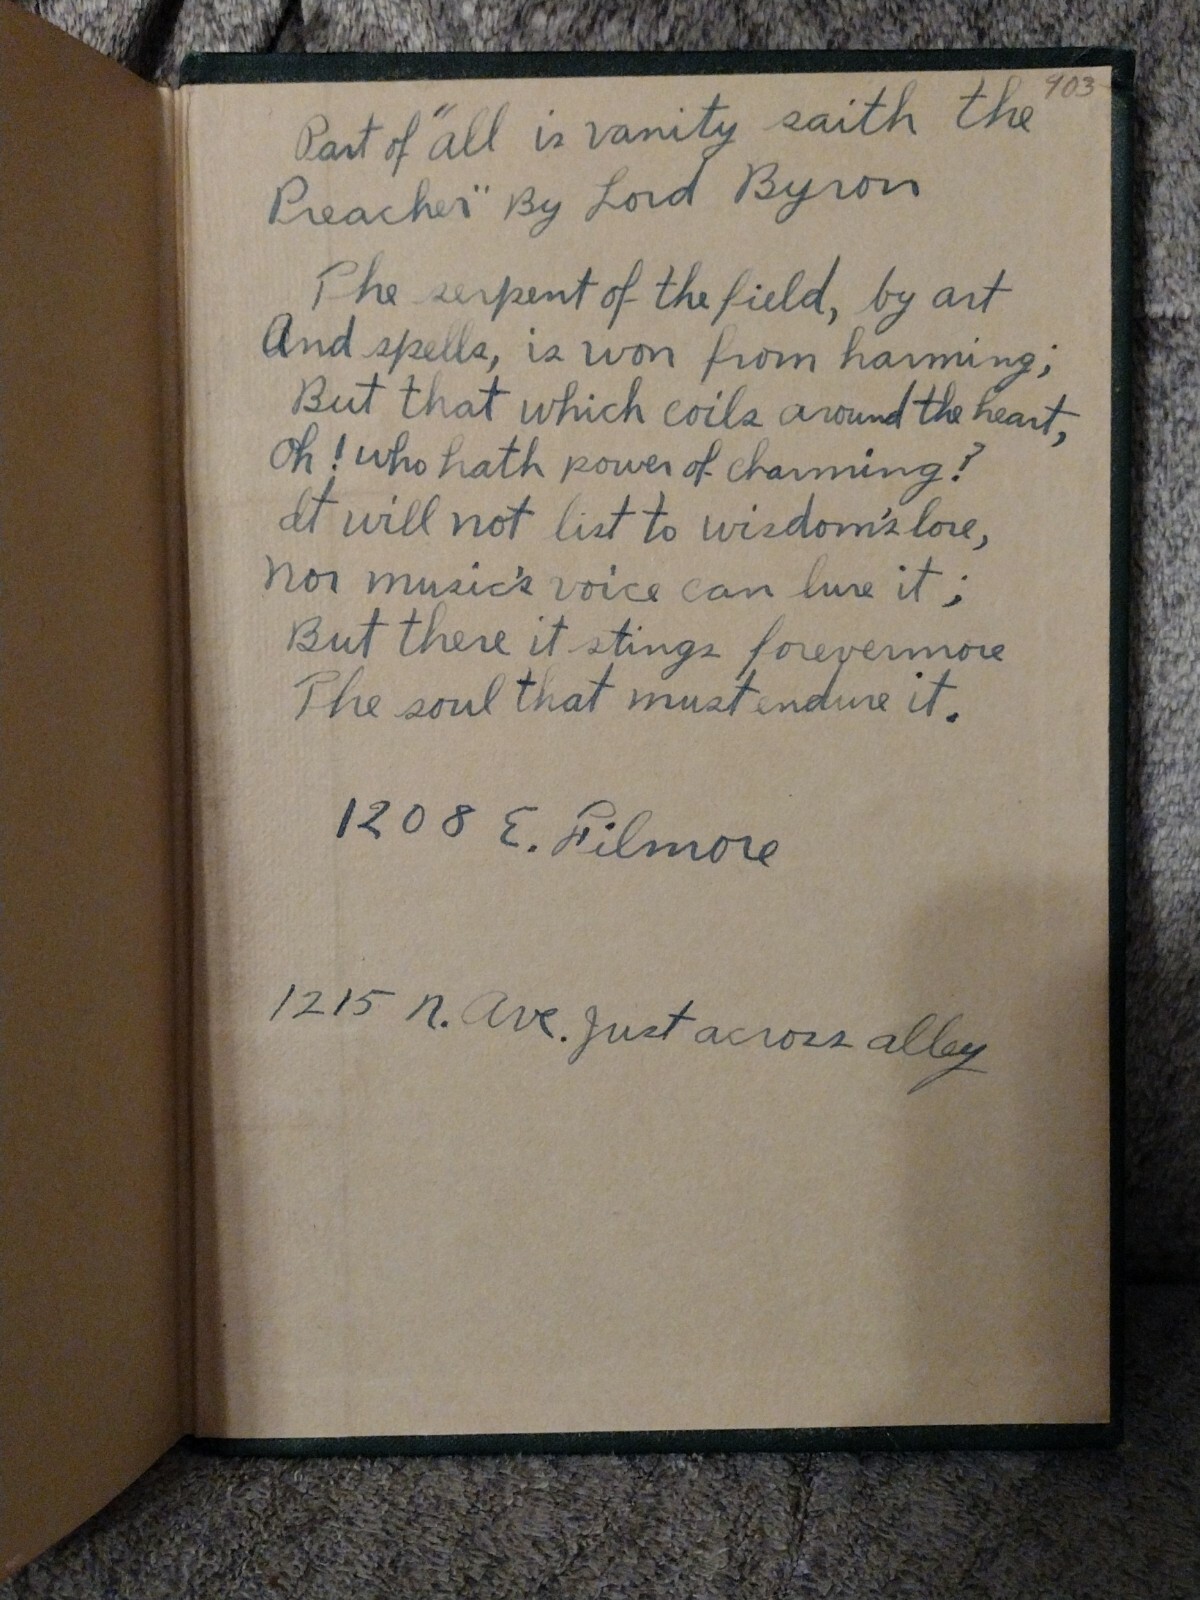 403
Part of "all is vanity saith the
Preacher" By Lord Byron
The serpent of the field, by art
And spells, is won from harming;
But that which coils around the heart,
Oh! who hath power of charming?
It will not list to wisdom's lore,
Nor music's voice can lure it;
But there it stings forevermore
The soul that must endure it.
1208 E. Filmore
1215 N. Ave. Just across alley